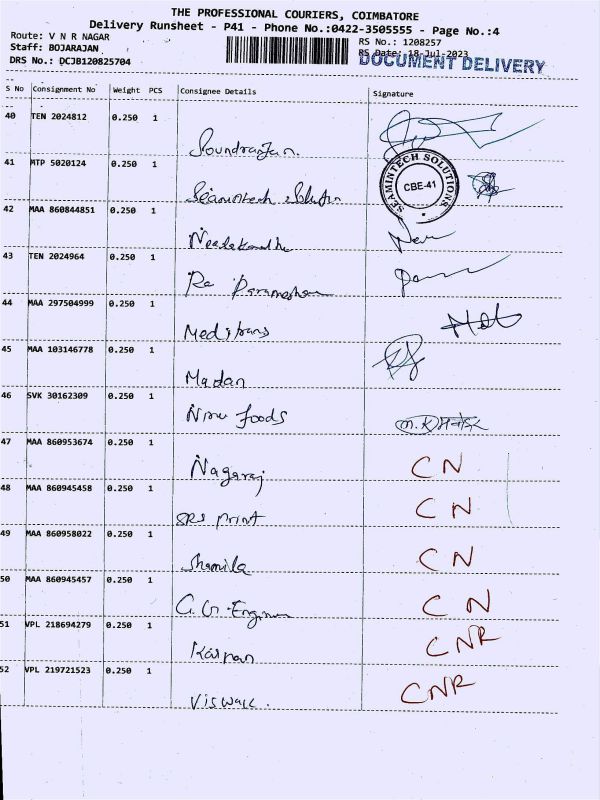 THE PROFESSIONAL COURIERS, COIMBATORE
Delivery Runsheet - P41 - Phone No.:0422-3505555 - Page No.:4
Route: V N R NAGAR
RS No.: 1208257
Staff: BOJARAJAN
RS Date: 18-Jul-2023
DRS No.: DCJB120825704
DOCUMENT DELIVERY
S No Consignment No Weight PCS Consignee Details Signature
40 TEN 2024812 0.250 1
Soundrarajan.
41 MTP 5020124 0.250 1
SEAMINTECH SOLUTIONS
CBE-41
Seamintech
42 MAA 860844851 0.250 1
43 TEN 2024964 0.250 1
44 MAA 297504999 0.250 1
Meditrans
45 MAA 103146778 0.250 1
Madan
46 SVK 30162309 0.250 1
foods
47 MAA 860953674 0.250 1
Nagaraj CN
48 MAA 860945458 0.250 1
SRS print CN
49 MAA 860958022 0.250 1
Shamila CN
50 MAA 860945457 0.250 1
CN
51 VPL 218694279 0.250 1
CNR
52 VPL 219721523 0.250 1
CNR